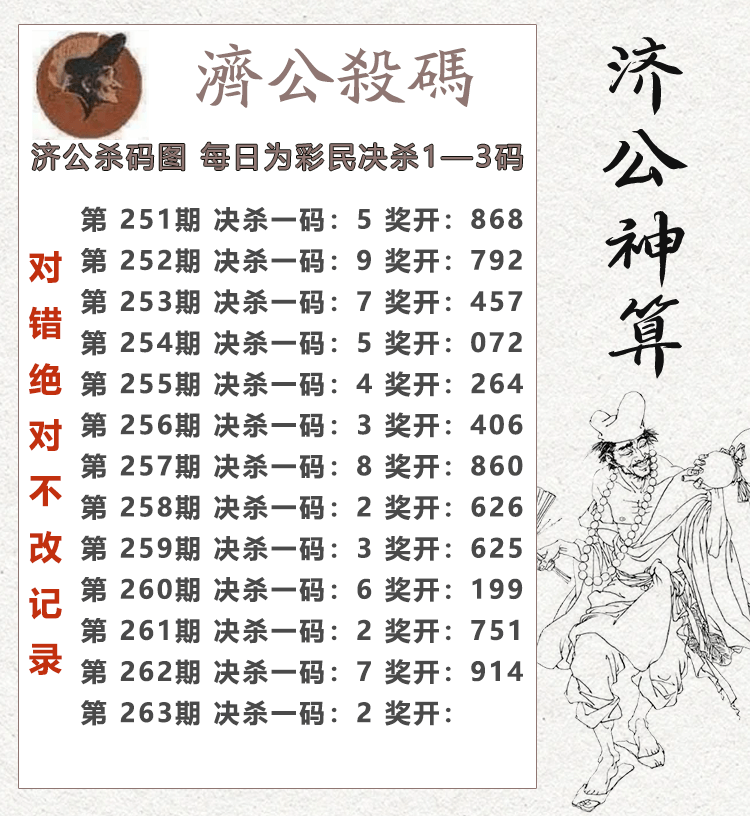 濟公殺碼
济公杀码图 每日为彩民决杀1—3码
第 251期 决杀一码：5 奖开：868
第 252期 决杀一码：9 奖开：792
第 253期 决杀一码：7 奖开：457
第 254期 决杀一码：5 奖开：072
第 255期 决杀一码：4 奖开：264
第 256期 决杀一码：3 奖开：406
第 257期 决杀一码：8 奖开：860
第 258期 决杀一码：2 奖开：626
第 259期 决杀一码：3 奖开：625
第 260期 决杀一码：6 奖开：199
第 261期 决杀一码：2 奖开：751
第 262期 决杀一码：7 奖开：914
第 263期 决杀一码：2 奖开：
对错绝对不改记录
济公神算